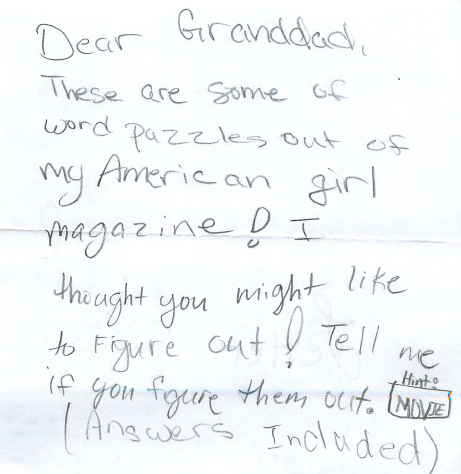 Dear Granddad,
These are some of
word puzzles out of
my American girl
magazine! I
thought you might like
to Figure out! Tell me
if you fgure them out. Hint: MOVIE
(Answers Included)